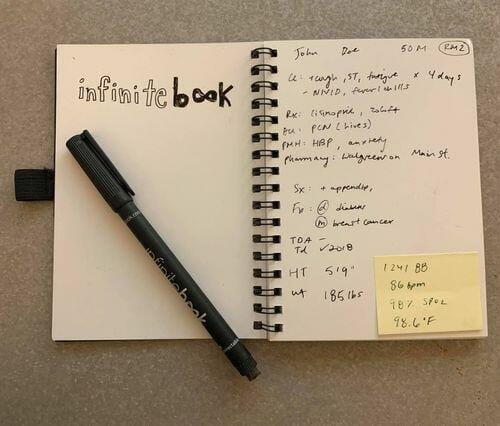 infinitebook
infinitebook
John Doe 50M RM2
CC: +cough, ST, fatigue x 4 days
- N/V/D, fever/chills
Rx: lisinopril, zoloft
All: PCN (hives)
PMH: HBP, anxiety
Pharmacy: Walgreens on Main St.
Sx: + appendix,
Fx: d diabetes
m breast cancer
TDA -
Td ✓2018
HT 5'9"
wt 185 lbs
86 bpm
98% SPO2
98.6°F